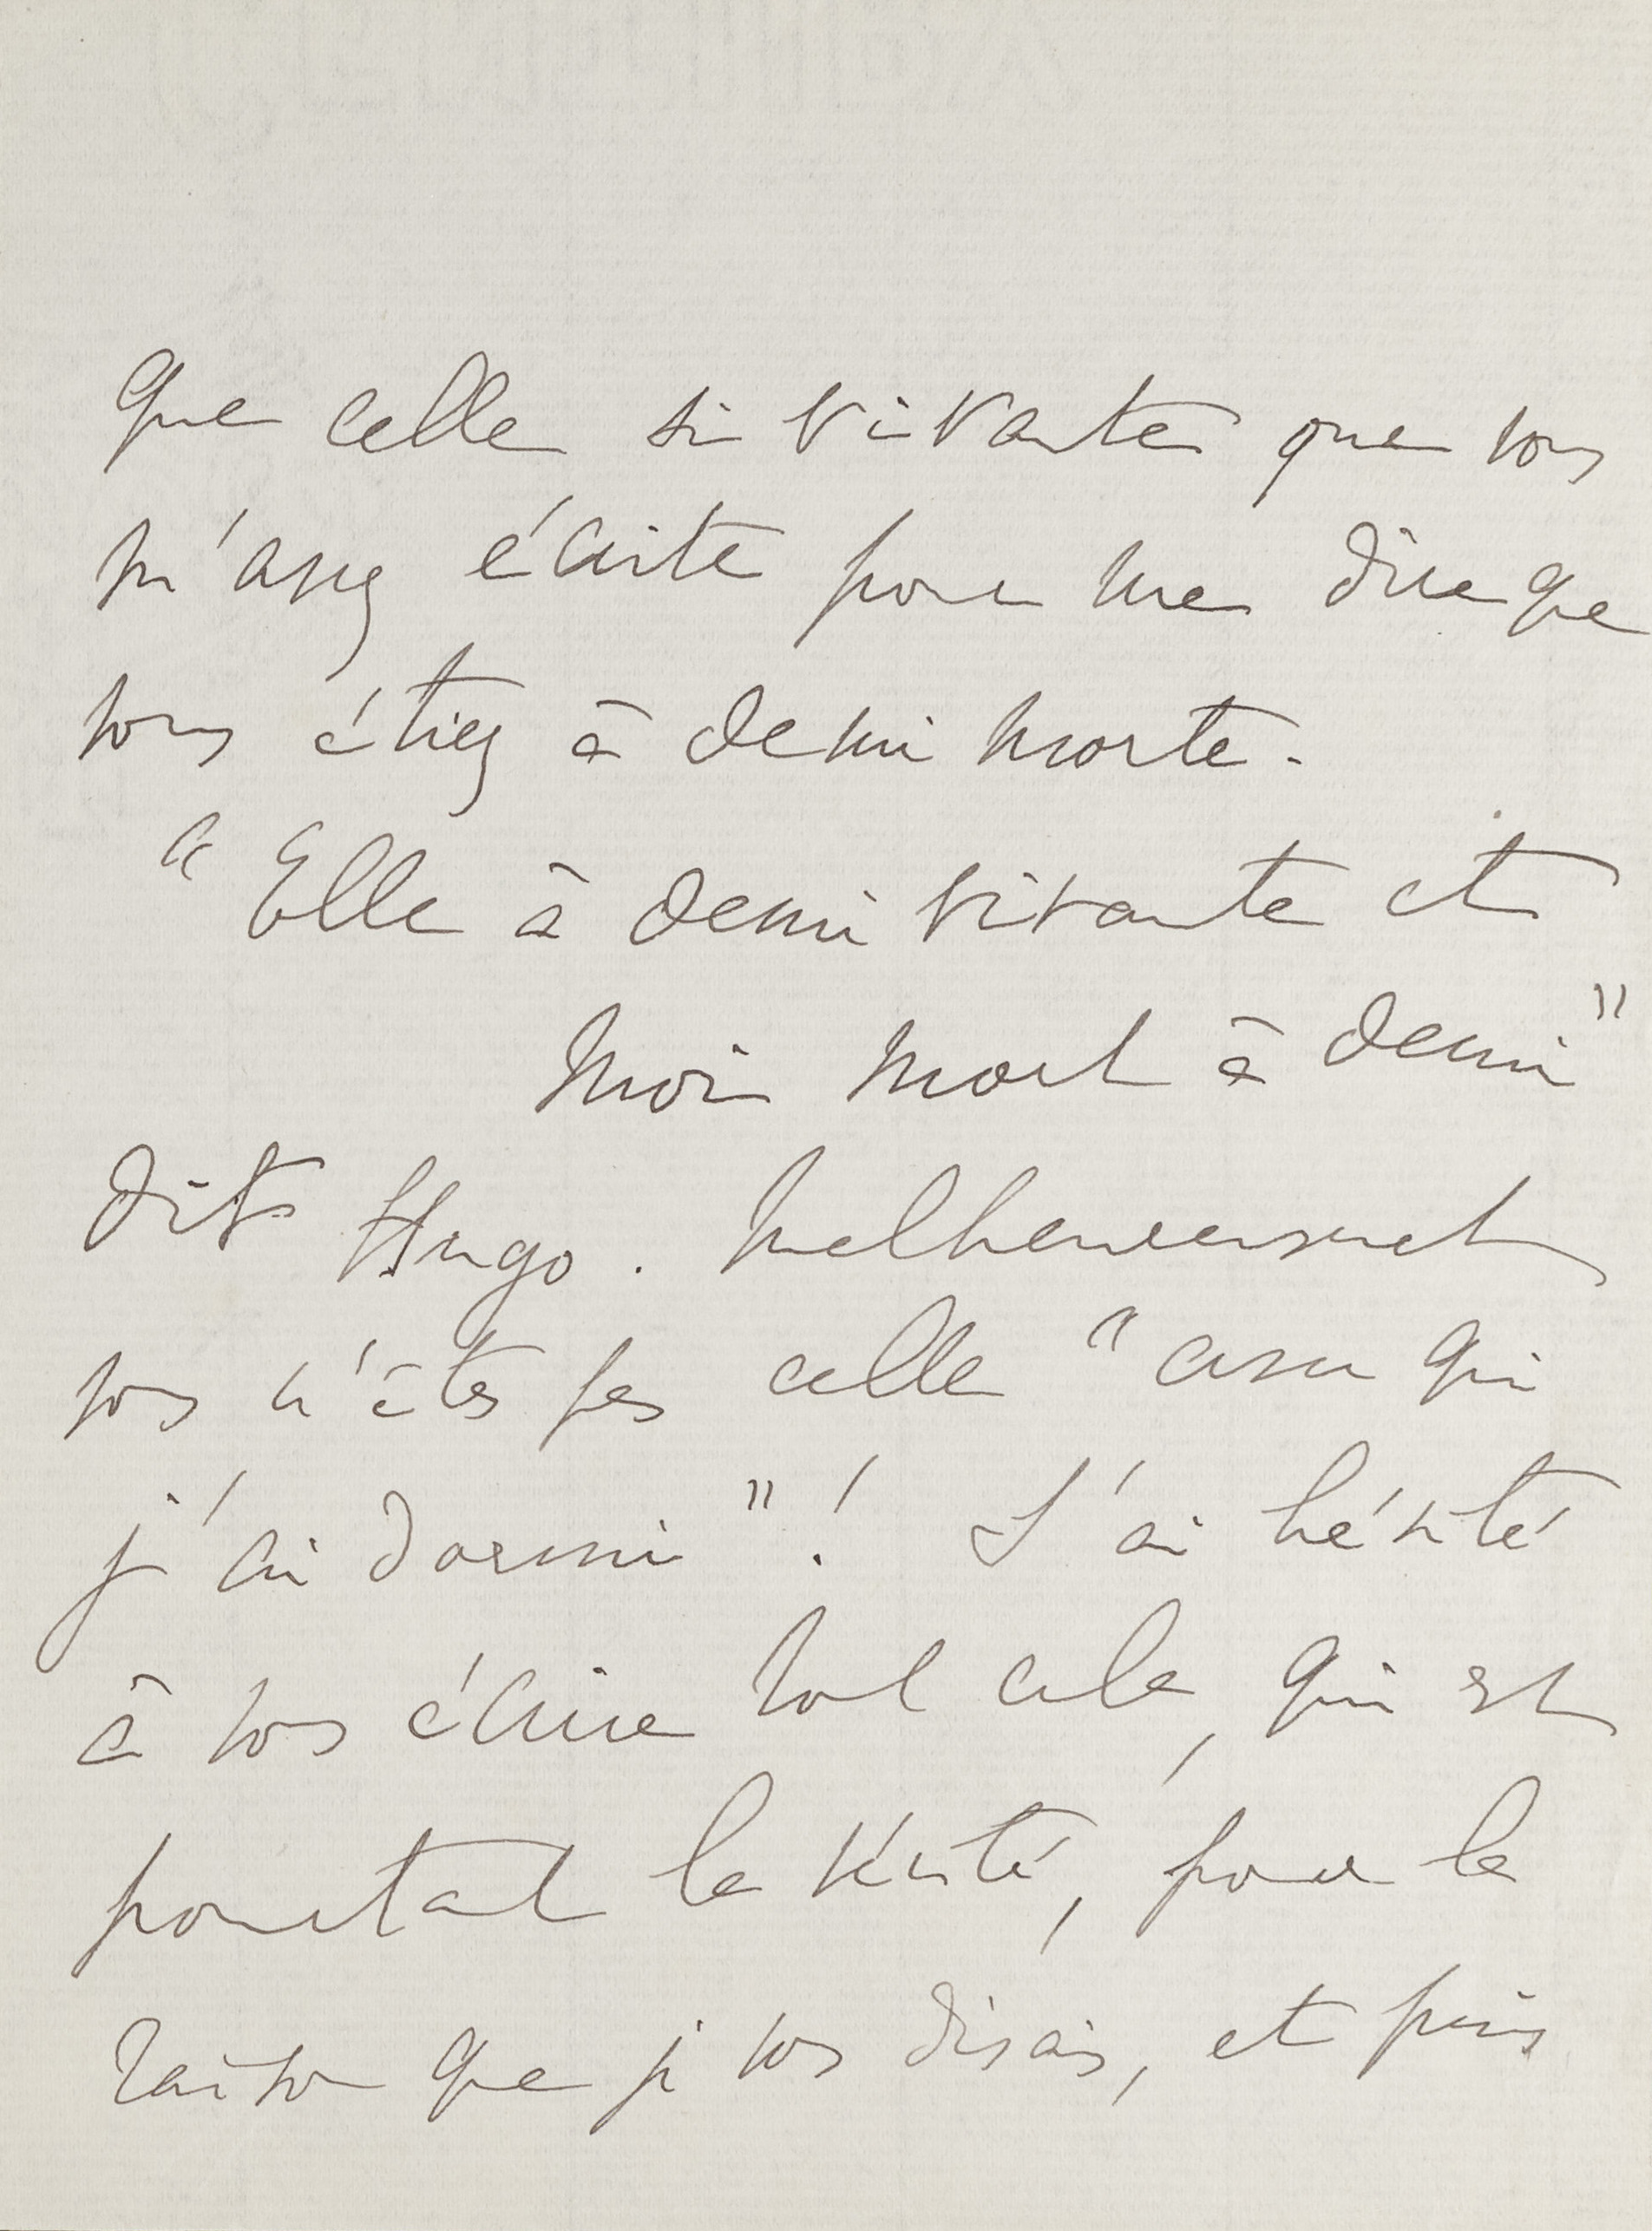 que celle si vivante que vous
m'avez écrite pour me dire que
vous étiez à demi morte.
"Elle à demi vivante et
moi mort à demi"
dit Hugo. Malheureusement
vous n'êtes pas celle "avec qui
j'ai dormi"! J'ai hésité
à vous écrire tout cela, qui est
pourtant la vérité, pour la
raison que je vous disais, et puis